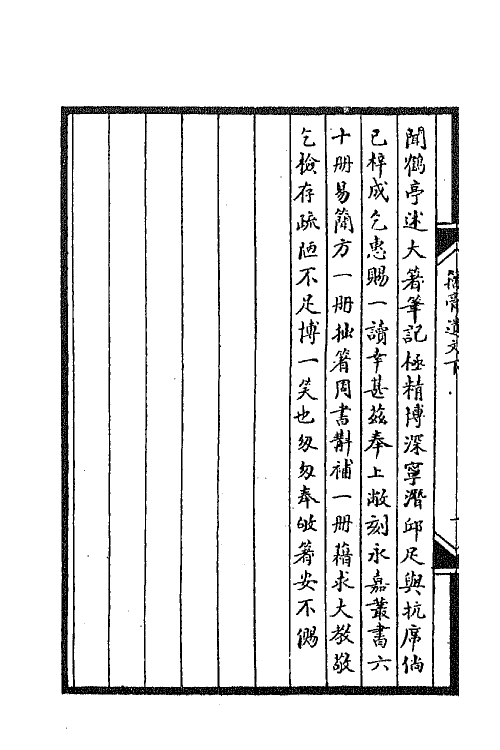 籀膏遺文下
聞鶴亭述大著筆記極精博深寧潛邱足與抗席倘
已梓成乞惠賜一讀幸甚茲奉上敝刻永嘉叢書六
十册易簡方一册拙箸周書斠補一册藉求大教敬
乞檢存疏陋不足博一笑也匆匆奉敂箸安不僃